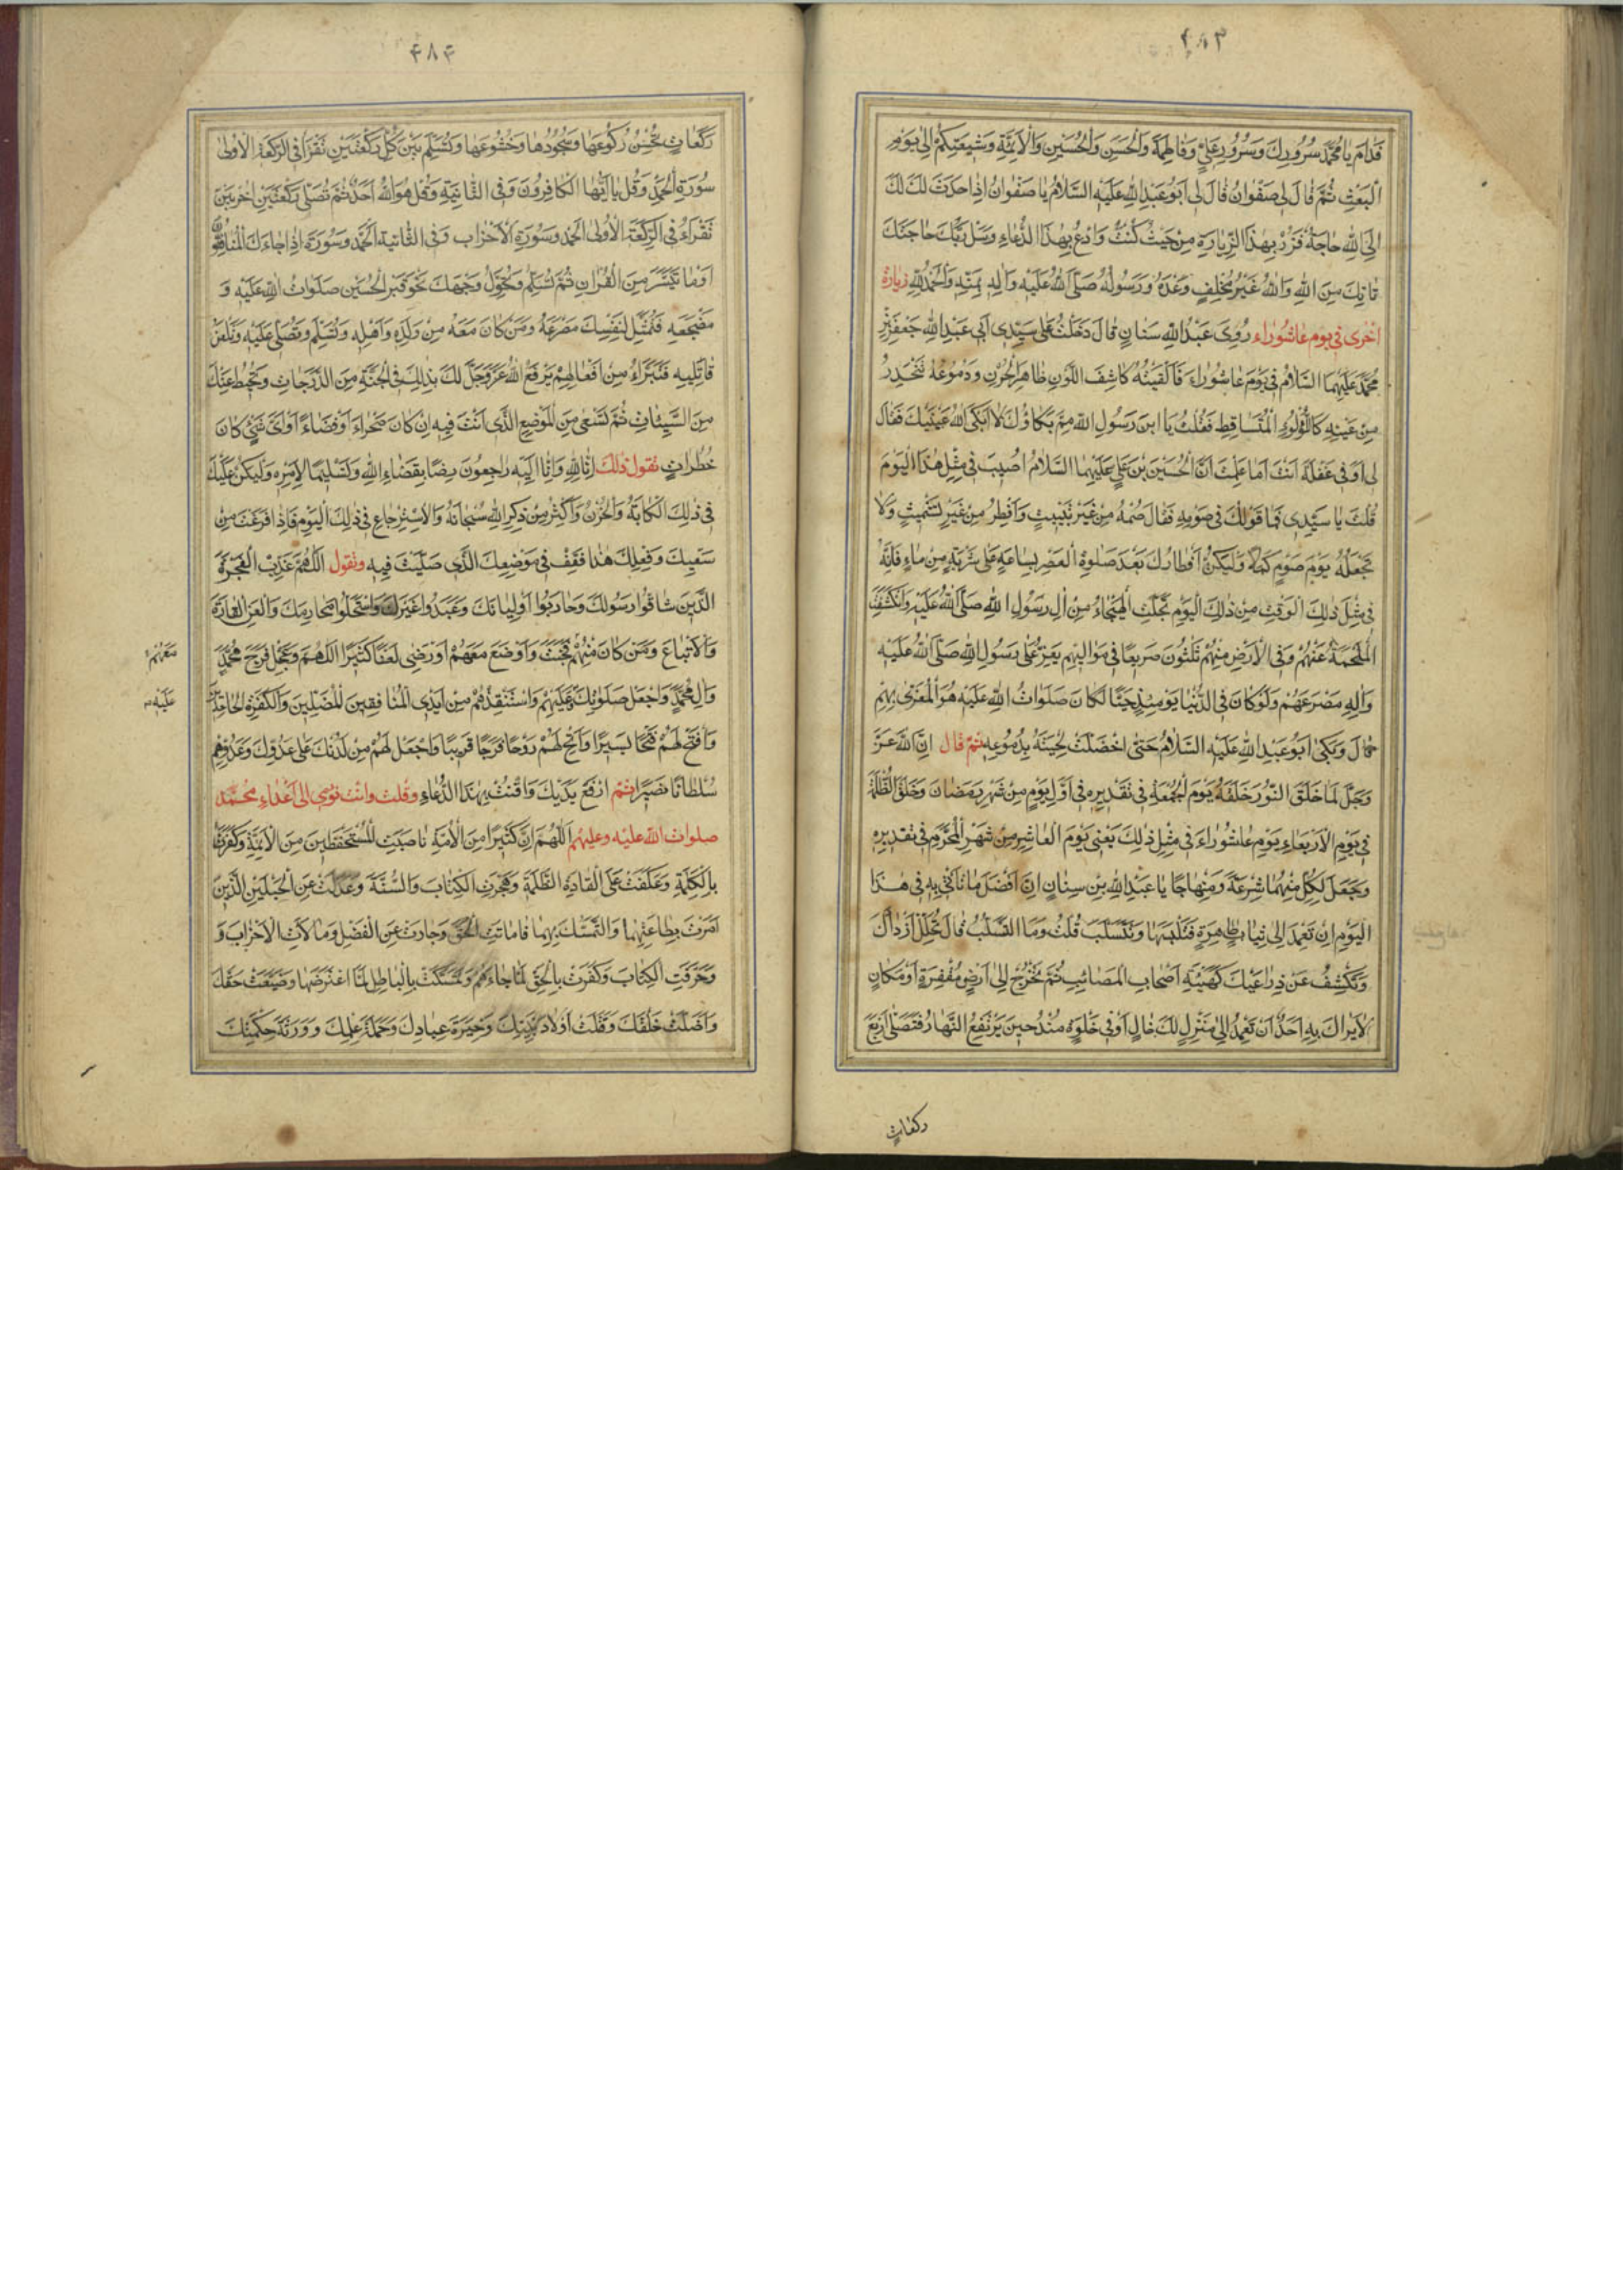 ۴۸۳
فدام يا محمد سرورك وسرور علي وفاطمة والحسن والحسين والائمة وشيعتكم الى يوم
البعث ثم قال لي صفوان قال لي ابو عبد الله عليه السلام يا صفوان اذا حدث لك
الى الله حاجة فزر بهذا الزيارة من حيث كنت وادع بهذا الدعاء وسل ربك حاجتك
تاتك من الله والله غير مخلف وعده ورسوله صلى الله عليه واله بمنه والحمد لله زيارة
اخرى في يوم عاشوراء روى عبد الله سنان قال دخلت على سيدي ابي عبد الله جعفر بن
محمد عليهما السلام في يوم عاشوراء فالقيته كاشف اللون ظاهر الحزن ودموعه تنحدر
من عينيه كاللؤلؤ المتساقط فقلت يا ابن رسول الله مم بكاؤك لا ابكى الله عينيك فقال
لي او في غفلة انت اما علمت ان الحسين بن علي عليهما السلام اصيب في مثل هذا اليوم
قلت يا سيدي فما قولك في صومه فقال صمه من غير تبييت وافطر من غير تشميت ولا
تجعله يوم صوم كملا وليكن افطارك بعد صلوة العصر بساعة على شربة من ماء فانه
في مثل ذلك الوقت من ذلك اليوم تجلت الهيجاء من ال رسول الله صلى الله عليه وانكشفت
الملحمة عنهم وفي الارض منهم ثلثون صريعا في مواليهم يعز على رسول الله صلى الله عليه
واله مصرعهم ولو كان في الدنيا يومئذ حيا لكان صلوات الله عليه هو المعزى بهم
قال وبكى ابو عبد الله عليه السلام حتى اخضلت لحيته بدموعه ثم قال ان الله عز
وجل لما خلق النور خلقه يوم الجمعة في تقديره في اول يوم من شهر رمضان وخلق الظلمة
في يوم الاربعاء يوم عاشوراء في مثل ذلك يعني يوم العاشر من شهر المحرم في تقديره
وجعل لكل منهما شرعة ومنهاجا يا عبد الله بن سنان ان افضل ما تاتي به في هذا
اليوم ان تعمد الى ثياب طاهرة فتلبسها وتتسلب قلت وما التسلب قال تحلل ازرارك
وتكشف عن ذراعيك كهيئة اصحاب المصائب ثم تخرج الى ارض مقفرة او مكان
لا يراك به احد ان تعمد الى منزل لك خال او في خلوة منذ حين يرتفع النهار فتصلى اربع
ركعات
۴۸۴
ركعات تحسن ركوعها وسجودها وخشوعها وتسلم بين كل ركعتين تقرا في الركعة الاولى
سورة الحمد وقل يا ايها الكافرون وفي الثانية وقل هو الله احد ثم تصلى ركعتين اخريين
تقراء في الركعة الاولى الحمد وسورة الاحزاب وفي الثانية الحمد وسورة اذا جاءك المنافقون
او ما تيسر من القران ثم تسلم وتحول وجهك نحو قبر الحسين صلوات الله عليه و
مضجعه فتمثل لنفسك مصرعه ومن كان معه من ولده واهله وتسلم وتصلى عليه وتلعن
قاتليه فتبراء من افعالهم يرفع الله عز وجل لك بذلك في الجنة من الدرجات ويحط عنك
من السيئات ثم تسعى من الموضع الذي انت فيه ان كان صحراء او فضاء او اي شيء كان
خطوات تقول ذلك انا لله وانا اليه راجعون رضا بقضاء الله وتسليما لامره وليكن عليك
في ذلك الكابة والحزن واكثر من ذكر الله سبحانه والاسترجاع في ذلك اليوم فاذا فرغت من
سعيك وفعلك هذا فقف في موضعك الذي صليت فيه وتقول اللهم عذب الفجرة
الذين شاقوا رسولك وحاربوا اوليائك وعبدوا غيرك واستحلوا محارمك والعن القادة
والاتباع ومن كان منهم فخب واوضع معهم او رضي لعنا كثيرا اللهم وعجل فرج محمد
معهم
وال محمد واجعل صلوتك عليهم واستنقذهم من ايدي المنافقين المضلين والكفرة الجاحدين
عليه
وافتح لهم فتحا يسيرا واتح لهم روحا فرجا قريبا واجعل لهم من لدنك على عدوك وعدوهم
سلطانا نصيرا ثم ارفع يديك واقنت بهذا الدعاء وقلت وانت تومي الى اعداء محمد
صلوات الله عليه وعليهم اللهم ان كثيرا من الامة ناصبت المستحفظين من الائمة وكفرت
بالكلمة وعكفت على القادة الظلمة وهجرت الكتاب والسنة وعدلت عن الحبلين الذين
امرت بطاعتهما والتمسك بهما فاماتت الحق وجارت عن الفضل ومالات الاحزاب و
وحرفت الكتاب وكفرت بالحق لما جاءهم وتمسكت بالباطل لما اعترضها وضيعت حقك
واضلت خلقك وقتلت اولاد نبيك وخيرة عبادك وحملة علمك وورثة حكمتك